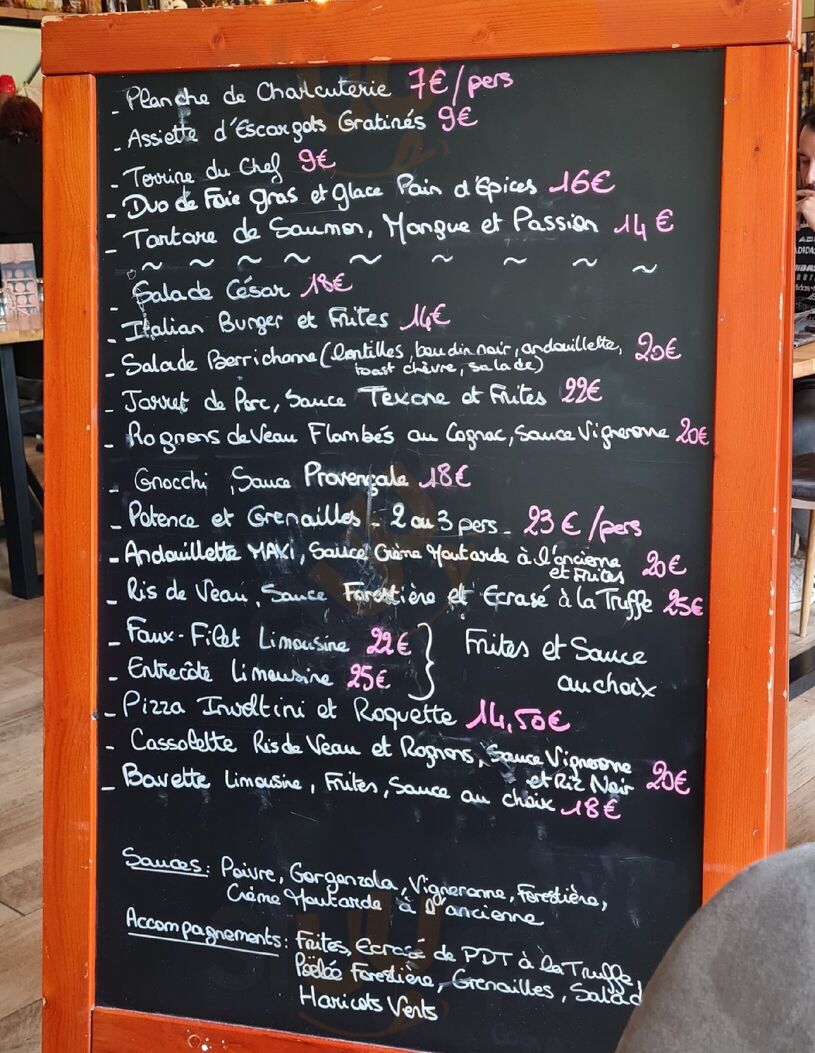 - Planche de Charcuterie 7€/pers
- Assiette d'Escargots Gratinés 9€
- Terrine du Chef 9€
- Duo de Foie gras et glace Pain d'Epices 16€
- Tartare de Saumon, Mangue et Passion 14€
~ ~ ~ ~ ~ ~ ~ ~ ~
- Salade César 18€
- Italian Burger et Frites 14€
- Salade Berrichonne (lentilles, boudin noir, andouillette, 20€
toast chèvre, salade)
- Jarret de Porc, Sauce Texane et Frites 22€
- Rognons de Veau Flambés au Cognac, Sauce Vigneronne 20€
- Gnocchi, Sauce Provençale 18€
- Potence et Grenailles - 2 ou 3 pers - 23€/pers
- Andouillette MAKI, Sauce Crème Moutarde à l'ancienne 20€
et Frites
- Ris de Veau, Sauce Forestière et Ecrasé à la Truffe 25€
- Faux-Filet Limousine 22€ } Frites et Sauce
- Entrecôte Limousine 25€ au choix
- Pizza Involtini et Roquette 14,50€
- Cassolette Ris de Veau et Rognons, Sauce Vigneronne
et Riz Noir 20€
- Bavette Limousine, Frites, Sauce au choix 18€
Sauces: Poivre, Gorgonzola, Vigneronne, Forestière,
Crème Moutarde à l'ancienne
Accompagnements: Frites, Ecrasé de PDT à la Truffe,
Poêlée Forestière, Grenailles, Salad
Haricots Verts